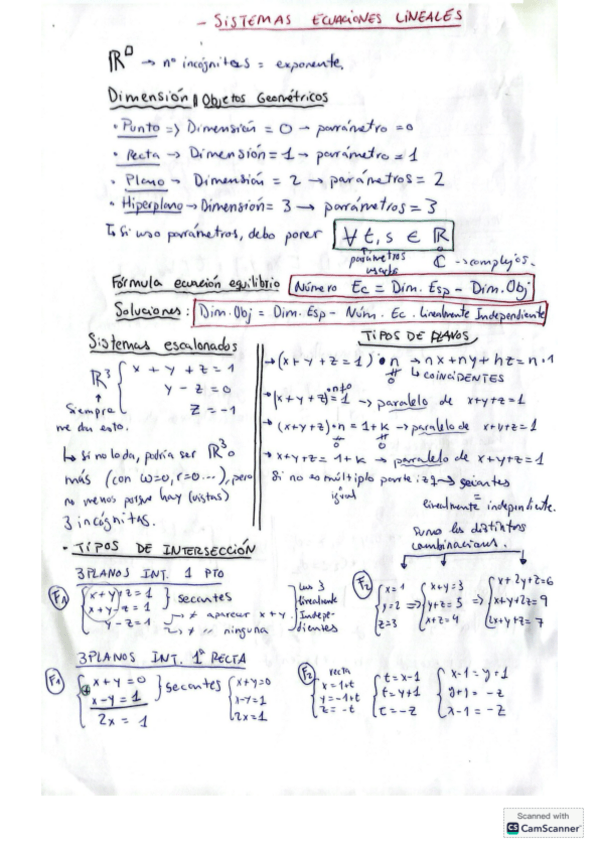 - SISTEMAS ECUACIONES LINEALES
ℝ□ → nº incógnitas = exponente.
Dimensión Objetos Geométricos
• Punto => Dimensión = 0 → parámetro = 0
• Recta → Dimensión = 1 → parámetro = 1
• Plano → Dimensión = 2 → parámetros = 2
• Hiperplano → Dimensión = 3 → parámetros = 3
↳ Si uso parámetros, debo poner ∀ t, s ∈ ℝ
parámetros
usados
ℂ → complejos.
Fórmula ecuación equilibrio Número Ec = Dim. Esp - Dim. Obj
Soluciones: Dim. Obj = Dim. Esp - Núm. Ec. Linealmente Independiente
Sistemas escalonados
ℝ³ { x + y + z = 1
y - z = 0
z = -1
↑
Siempre
me dan esto.
↳ si no lo da, podría ser ℝ³ o
más (con w=0, r=0...), pero
no menos porque hay (vistas)
3 incógnitas.
TIPOS DE PLANOS
→ (x + y + z = 1) • n → nx + ny + nz = n • 1
≠ 0 ↳ COINCIDENTES
→ (x + y + z) • n≠0 = 1 → paralelo de x+y+z=1
→ (x + y + z) • n = 1 + k → paralelo de x+y+z=1
≠ 0 ≠ 0
→ x+y+z = 1+k → paralelo de x+y+z=1
Si no es múltiplo parte izq → secantes
igual =
linealmente independiente.
• TIPOS DE INTERSECCIÓN
3 PLANOS INT. 1 PTO
F1 { x+y+z=1
x+y-z=1 } secantes
y-z=1
→ ≠ aparecer x+y
→ ≠ " ninguna
Las 3
linealmente
Indepe-
dientes
Sumo las distintas
combinaciones.
F2 { x=1
y=2
z=3
=> { x+y=3
y+z=5
x+z=4
=> { x+2y+z=6
x+y+2z=9
2x+y+z=7
3 PLANOS INT. 1ª RECTA
F1 { x+y=0
x-y=1 } secantes
2x = 1
{ x+y=0
x-y=1
2x=1
F2 recta
x=1+t
y=-1+t
z=-t
{ t=x-1
t=y+1
t=-z
{ x-1=y+1
y+1=-z
x-1=-z
Scanned with
CS CamScanner